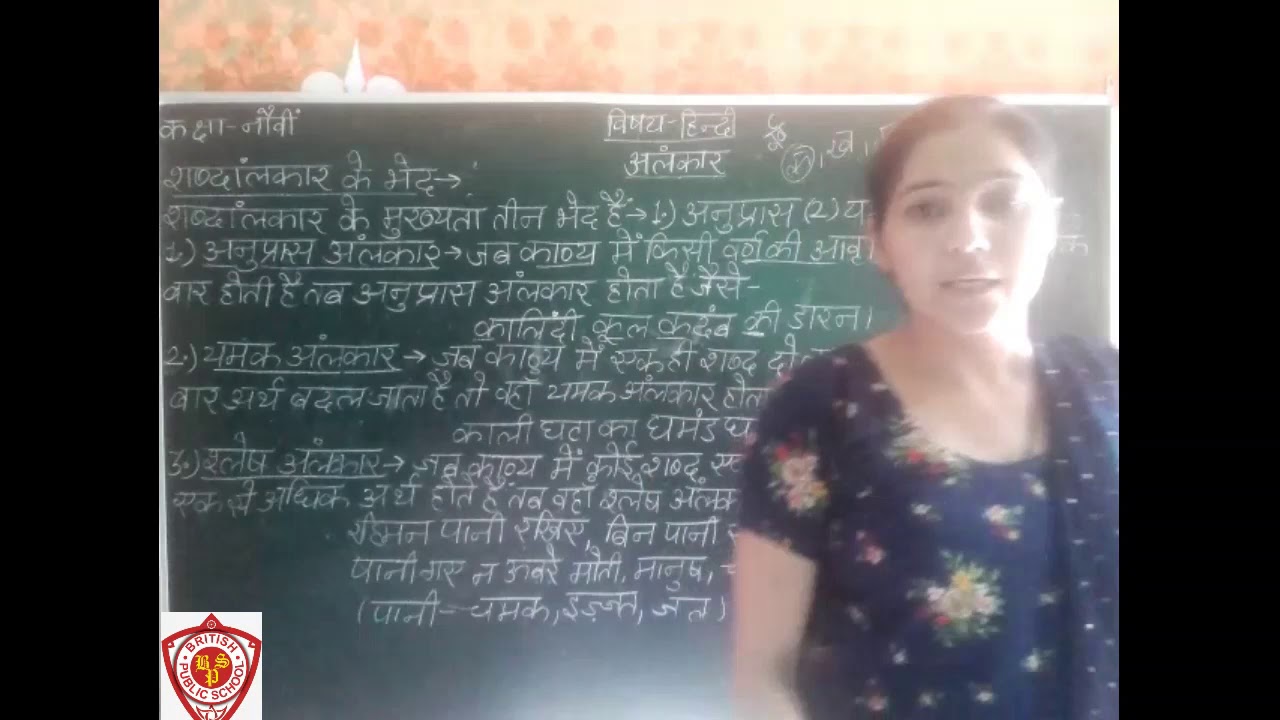 कक्षा-नौवीं
विषय-हिन्दी
अलंकार
क, ख,
शब्दांलकार के भेद→
शब्दांलकार के मुख्यता तीन भेद हैं→1.) अनुप्रास (2) य
1.) अनुप्रास अंलकार→जब काव्य में किसी वर्ण की आवृ
बार होती है तब अनुप्रास अंलकार होता है जैसे-
कालिंदी कूल कदंब की डारन।
2.) यमक अंलकार→ जब काव्य में एक ही शब्द दो
बार अर्थ बदल जाता है तो वहाँ यमक अंलकार होता
काली घटा का घमंड घ
3.) श्लेष अंलकार→ जब काव्य में कोई शब्द ए
एक से अधिक अर्थ होते हैं तब वहाँ श्लेष अंलक
रहिमन पानी रखिए, बिन पानी स
पानी गए न ऊबरे मोती, मानुष, च
(पानी-चमक, इज़्ज़त, जल)
BRITISH PUBLIC SCHOOL
BSP